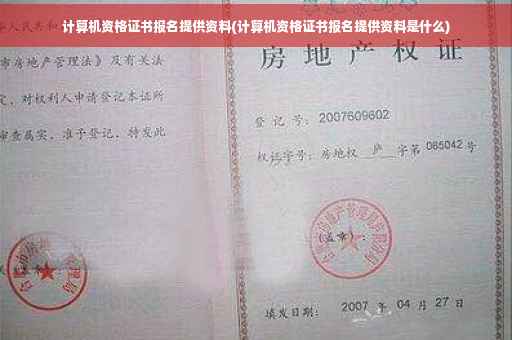 计算机资格证书报名提供资料(计算机资格证书报名提供资料是什么)
华人民共和
市房地产管理法》及有关法
定,对权利人申请登记本证所
审查属实,准予登记,特发此
房地产权证
登记号:2007609602
权证字号:房地权 庐 字第 085042 号
(盖章):
填发日期: 2007 年 04 月 27 日